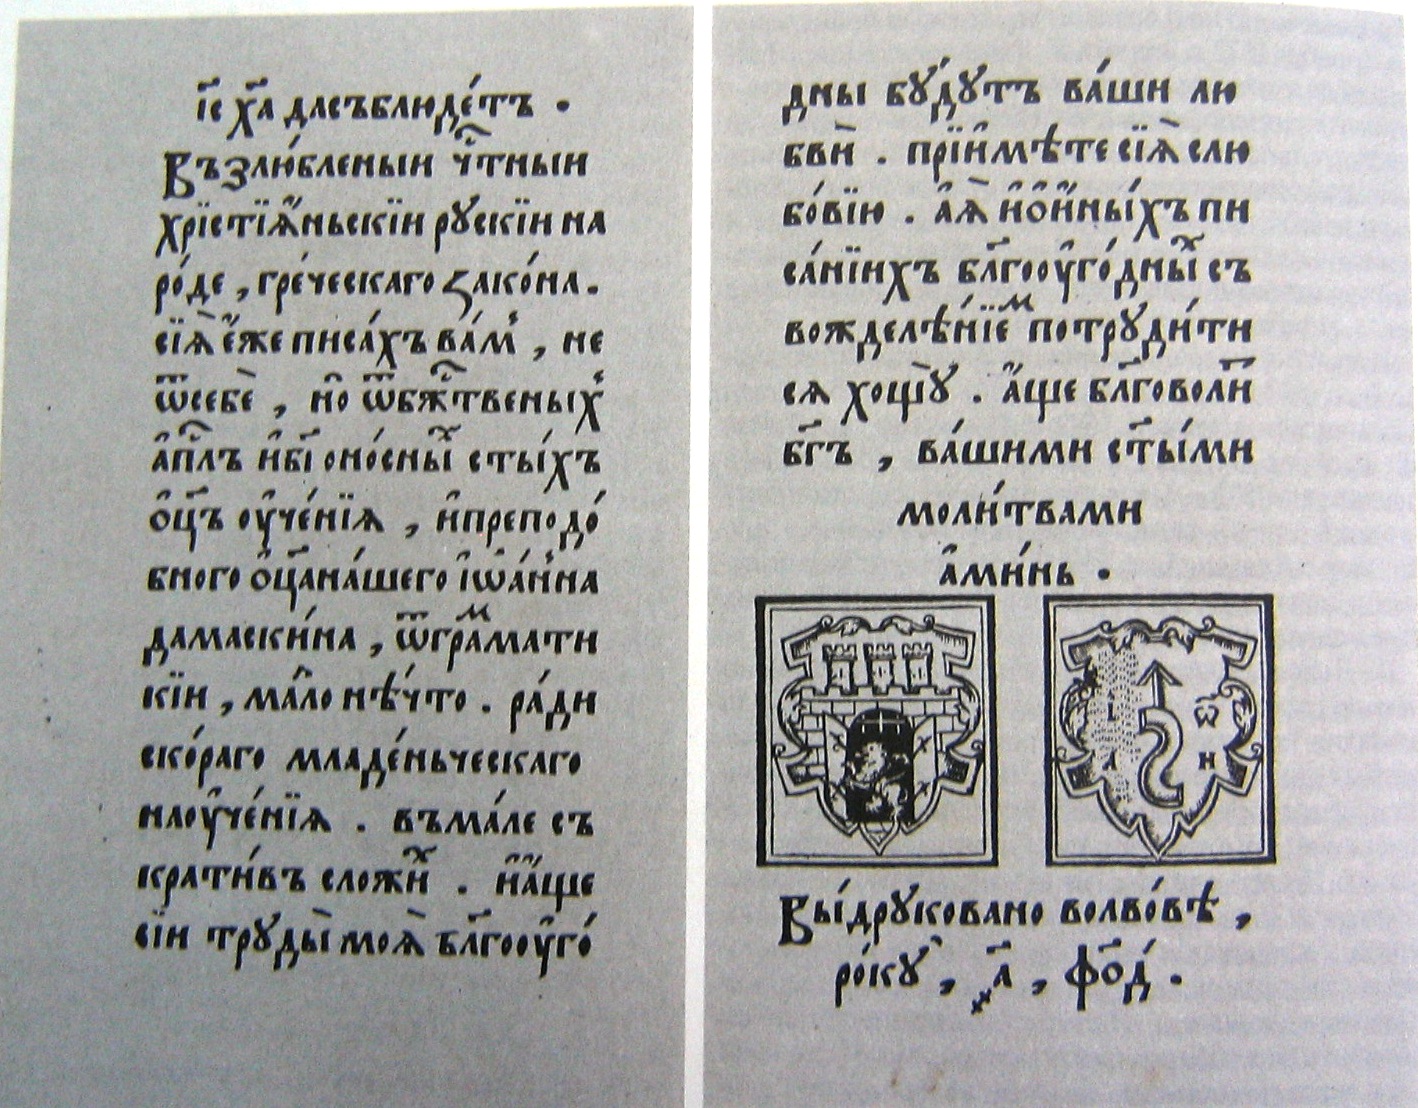 і҃с х҃а дасъблюде́тъ .
Възлю́бленыи чⷭ҇тныи
хрїстїѧ́ньскїи рускїи на
ро́де , гре́ческаго зако́на .
сїѧ̀ е́же писа́хъ ва́м , не
ѿсебѐ , но̑ ѿбж҃твеныⷯ
а҆п҃лъ и҆б҃гоно́сныⷯ с҃ты́хъ
о҆ц҃ъ оу҆че́нїѧ , и҆преподо́
бного о҆ц҃ана́шего і҆ѡа́нна
дамаски́на , ѿграⷨмати
кїи , ма́ло нѣ́что . ра́ди
ско́раго младе́ньческаго
наоу҆че́нїѧ . въма́ле съ
крати́въ сложиⷯ . и҆а҆́ще
сїи труды̀ моѧ̀ бл҃гооу҆го́
дны бу́дутъ ва́ши лю
бвѝ . прїи҆мѣте сїѧ̀ слю
бо́вїю . а҆ѧ̀ и҆о҆и҆ны́хъ пи
са́нїихъ бл҃гооу҆го́дныⷯ съ
вожделѣ́нїеⷨ потруди́ти
сѧ хощу̀ . а҆́ще бл҃говоли́т
б҃гъ , ва́шими с҃ты́ми
моли́твами
а҆ми́нь .
ѿ
і а н
Вы́друковано волво́вѣ ,
ро́ку , ҂а҃ , фо҃д .